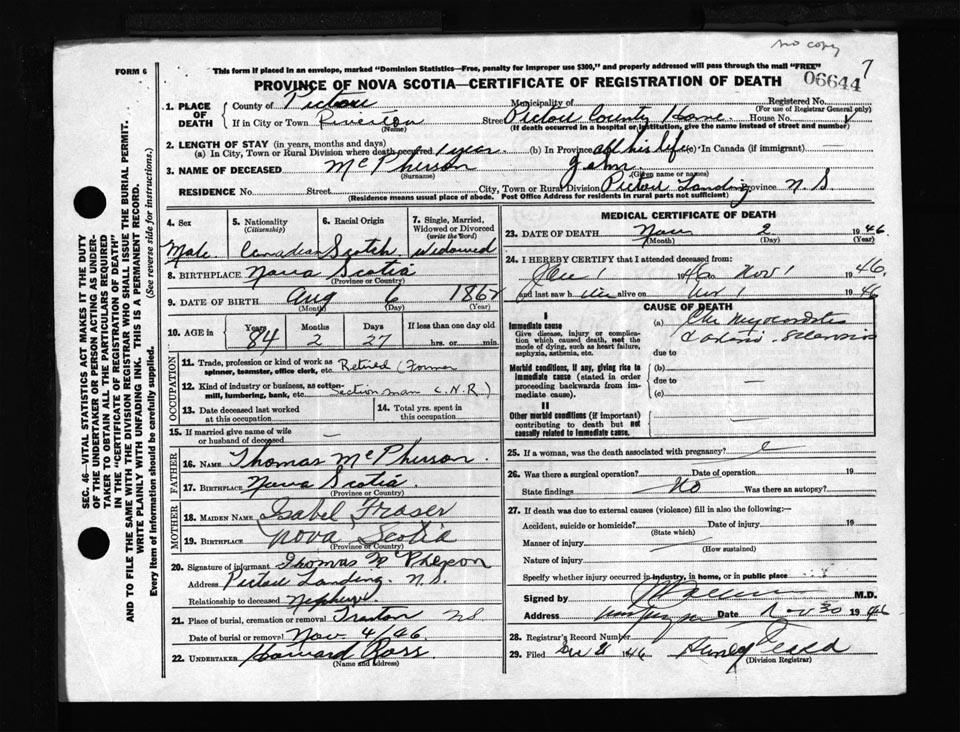 no copy
7
FORM 6
This form if placed in an envelope, marked "Dominion Statistics—Free, penalty for improper use $300," and properly addressed will pass through the mail "FREE"
PROVINCE OF NOVA SCOTIA—CERTIFICATE OF REGISTRATION OF DEATH
06644
SEC. 46—VITAL STATISTICS ACT MAKES IT THE DUTY
OF THE UNDERTAKER OR PERSON ACTING AS UNDER-
TAKER TO OBTAIN ALL THE PARTICULARS REQUIRED
IN THE "CERTIFICATE OF REGISTRATION OF DEATH"
AND TO FILE THE SAME WITH THE DIVISION REGISTRAR WHO SHALL ISSUE THE BURIAL PERMIT.
WRITE PLAINLY WITH UNFADING INK. THIS IS A PERMANENT RECORD.
Every item of information should be carefully supplied. (See reverse side for instructions.)
1. PLACE OF DEATH
County of Pictou Municipality of Registered No.
(For use of Registrar General only)
If in City or Town Riverton Street Pictou County Home. House No.
(Name) (If death occurred in a hospital or institution, give the name instead of street and number)
2. LENGTH OF STAY (in years, months and days)
(a) In City, Town or Rural Division where death occurred 1 year. (b) In Province all his life (c) In Canada (if immigrant) —
3. NAME OF DECEASED McPherson John.
(Surname) (Given name or names)
RESIDENCE No. Street City, Town or Rural Division Pictou Landing Province N.S
(Residence means usual place of abode. Post Office Address for residents in rural parts not sufficient)
4. Sex
Male
5. Nationality
(Citizenship)
Canadian
6. Racial Origin
Scotch
7. Single, Married, Widowed or Divorced
(write the word)
Widowed
8. BIRTHPLACE Nova Scotia
(Province or Country)
9. DATE OF BIRTH Aug 6 1862
(Month) (Day) (Year)
10. AGE in
Years Months Days If less than one day old
84 2 27 hrs. or min.
OCCUPATION
11. Trade, profession or kind of work as Retired (Former
spinner, teamster, office clerk, etc.
12. Kind of industry or business, as cotton- Sectionman C.N.R.)
mill, lumbering, bank, etc.
13. Date deceased last worked
at this occupation
14. Total yrs. spent in
this occupation
15. If married give name of wife
or husband of deceased —
FATHER
16. NAME Thomas McPherson.
17. BIRTHPLACE Nova Scotia.
(Province or Country)
MOTHER
18. MAIDEN NAME Isabel Fraser
19. BIRTHPLACE Nova Scotia
(Province or Country)
20. Signature of informant Thomas Mc Pherson
Address Pictou Landing. N.S.
Relationship to deceased Nephew.
21. Place of burial, cremation or removal Trenton NS
Date of burial or removal Nov. 4/46.
22. UNDERTAKER Howard Ross
(Name and Address)
MEDICAL CERTIFICATE OF DEATH
23. DATE OF DEATH Nov 2 1946.
(Month) (Day) (Year)
24. I HEREBY CERTIFY that I attended deceased from:
1946 to Nov 1 1946.
and last saw him alive on Nov 1 1946
I
Immediate cause
Give disease, injury or complication which caused death, not the mode of dying, such as heart failure, asphyxia, asthenia, etc.
Morbid conditions, if any, giving rise to immediate cause (stated in order proceeding backwards from immediate cause).
II
Other morbid conditions (if important) contributing to death but not causally related to immediate cause.
CAUSE OF DEATH
(a) Chr Myocarditis
Sclerosis
due to
(b)
due to —
(c)
25. If a woman, was the death associated with pregnancy?
26. Was there a surgical operation? Date of operation 19
State findings No Was there an autopsy?
27. If death was due to external causes (violence) fill in also the following:—
Accident, suicide or homicide? Date of injury 19
(State which)
Manner of injury
(How sustained)
Nature of injury
Specify whether injury occurred in industry, in home, or in public place
Signed by M.D.
Address Date 1946
28. Registrar's Record Number
29. Filed 1946
(Division Registrar)